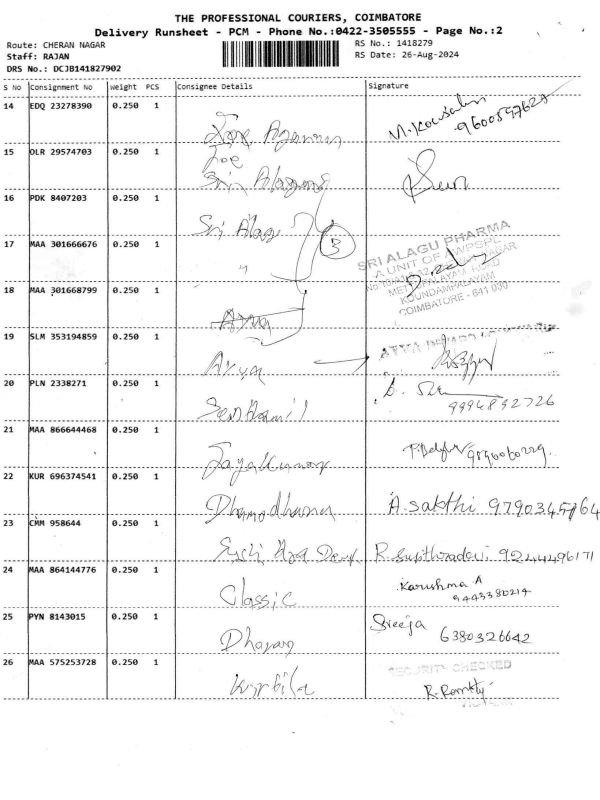 THE PROFESSIONAL COURIERS, COIMBATORE
Delivery Runsheet - PCM - Phone No.:0422-3505555 - Page No.:2
Route: CHERAN NAGAR
RS No.: 1418279
Staff: RAJAN
RS Date: 26-Aug-2024
DRS No.: DCJB141827902
S No Consignment No Weight PCS Consignee Details Signature
14 EDQ 23278390 0.250 1
M. Kowsalya
15 OLR 29574703 0.250 1
Sri Alagu
16 PDK 8407203 0.250 1
Sri Alagu
3
17 MAA 301666676 0.250 1
"
SRI ALAGU PHARMA
A UNIT OF AWPSPL
KOUNDAMPALAYAM
COIMBATORE - 641 030
18 MAA 301668799 0.250 1
Arya
19 SLM 353194859 0.250 1
Arya
20 PLN 2338271 0.250 1
Senthamil
9994892726
21 MAA 866644468 0.250 1
Jayakumar
22 KUR 696374541 0.250 1
Dhamodharan
A. Sakthi
23 CMM 958644 0.250 1
R. Supithradevi 9244496171
24 MAA 864144776 0.250 1
Classic
Karishma A
9443380214
25 PYN 8143015 0.250 1
Dharan
Sreeja
6380326642
26 MAA 575253728 0.250 1
SECURITY CHECKED